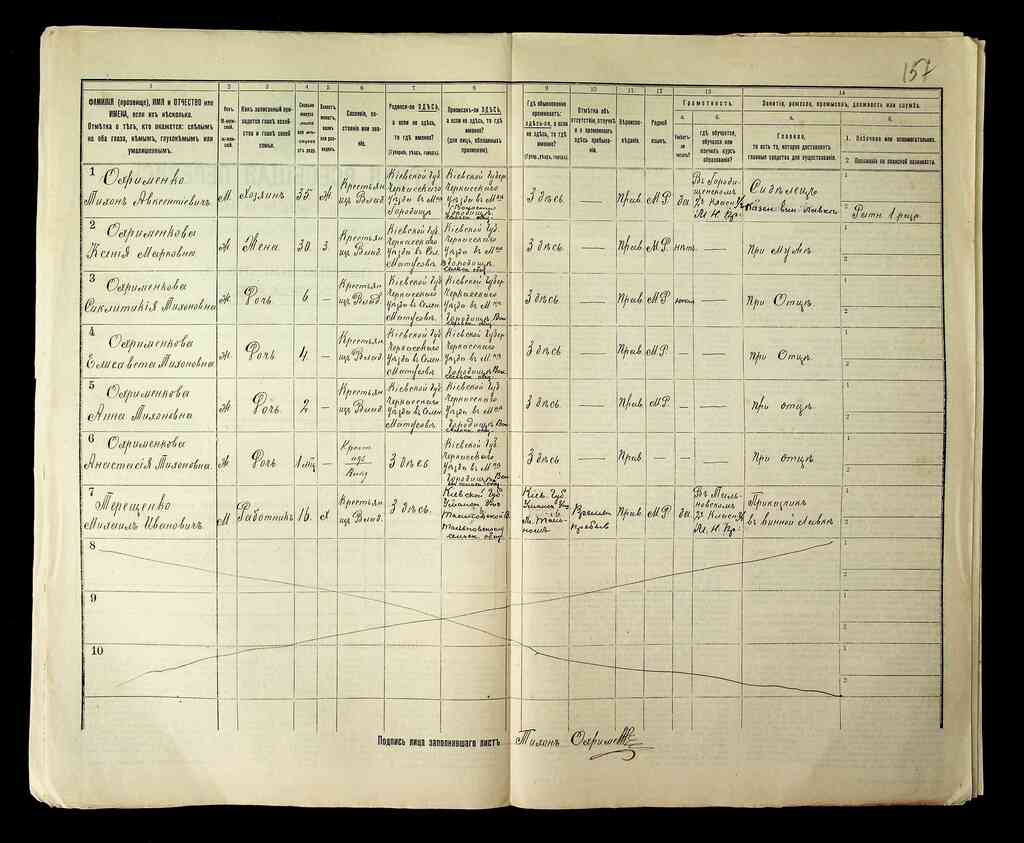 157
1 2 3 4 5 6 7 8 9 10 11 12 13 14
ФАМИЛІЯ (прозвище), ИМЯ и ОТЧЕСТВО или
ИМЕНА, если ихъ нѣсколько.
Отмѣтка о тѣхъ, кто окажется: слѣпымъ
на оба глаза, нѣмымъ, глухонѣмымъ или
умалишеннымъ.
Какъ записанный при-
ходится главѣ хозяй-
ства и главѣ своей
семьи.
Родился-ли ЗДѢСЬ,
а если не здѣсь,
то гдѣ именно?
(Губернія, уѣздъ, городъ).
Приписанъ-ли ЗДѢСЬ,
а если не здѣсь, то гдѣ
именно?
(для лицъ, обязанныхъ
припискою).
Гдѣ обыкновенно
проживаетъ:
здѣсь-ли, а если
не здѣсь, то гдѣ
именно?
(Губ., уѣздъ, городъ).
Отмѣтка объ
отсутствіи, отлучкѣ
и о временномъ
здѣсь пребыва-
ніи.
Вѣроиспо-
вѣданіе.
Родной
языкъ.
Грамотность.
а.
Умѣетъ-
ли читать?
б.
гдѣ обучается,
обучался или
кончилъ курсъ
образованія?
Занятіе, ремесло, промыселъ, должность или служба.
а.
Главное,
то есть то, которое доставляетъ
главныя средства для существованія.
б.
1. Побочное или вспомогательное.
2. Положеніе по воинской повинности.
1 Охрименко
Тихонъ Авксентіевичъ
М Хозяинъ 35 Ж
Крестьян
изъ Влад.
Кіевской Губ
Черкасскаго
Уѣзда въ М
Городищѣ
Кіевской Губер
Черкасскаго
Уѣзда въ М
Здѣсь — Прав. МР да
Въ Городи-
щенскомъ
2х Класн У
М. Н. Пр.
Сидѣлецъ
Казен Вин Лавки
Ратн 1 раз
2 Охрименкова
Ксенія Марковна
Ж Жена 30 З
Крестьян
изъ Влад.
Кіевской Губ.
Черкасскаго
Уѣзда въ Сел.
Матусовѣ
Кіевской Губер
Черкасскаго
Уѣзда въ М
Городищѣ
Здѣсь — Прав МР нѣтъ —
При мужѣ
3 Охрименкова
Синклитикія Тихоновна
Ж Дочь 6 —
Крестьян
изъ Влад
Кіевской Губ
Черкасскаго
Уѣзда въ Селѣ
Матусовѣ
Кіевской Губер
Черкасскаго
Уѣзда въ М
Городищѣ
Здѣсь — Прав МР нѣтъ —
При Отцѣ
4 Охрименкова
Елисавета Тихоновна
Ж. Дочь 4 —
Крестьян
изъ Влад
Кіевской Губ
Черкасскаго
Уѣзда въ Селѣ
Матусовѣ
Кіевской Губер
Черкасскаго
Уѣзда въ М
Городищѣ
Здѣсь — Прав МР. — —
При Отцѣ
5 Охрименкова
Анна Тихоновна
Ж Дочь 2 —
Крестьян
изъ Влад.
Кіевской Губ
Черкасскаго
Уѣзда въ Селѣ
Матусовѣ
Кіевской Губер
Черкасскаго
Уѣзда въ М
Городищѣ
Здѣсь — Прав. МР — —
При отцѣ
6 Охрименкова
Анастасія Тихоновна.
Ж Дочь 1 мѣс —
Крест
изъ
Влад
Здѣсь
Кіевской Губ.
Черкасскаго
Уѣзда въ М
Городищѣ
Здѣсь — Прав — — —
При отцѣ
7 Терещенко
Михаилъ Ивановичъ
М Работникъ 16. х
Крестьян
изъ Влад.
Здѣсь.
Кіевской Губ
Уман
Тальновской В.
Тальновскаго
сельск общ.
Кіев. Губ
М. Таль-
номъ
Времен
пребыв
Прав МР да
Въ Таль-
новскомъ
2х Класн У
М. Н. Пр.
Приказчик
въ винной лавкѣ
8
9
10
Подпись лица заполнившаго листъ Тихонъ Охрименко